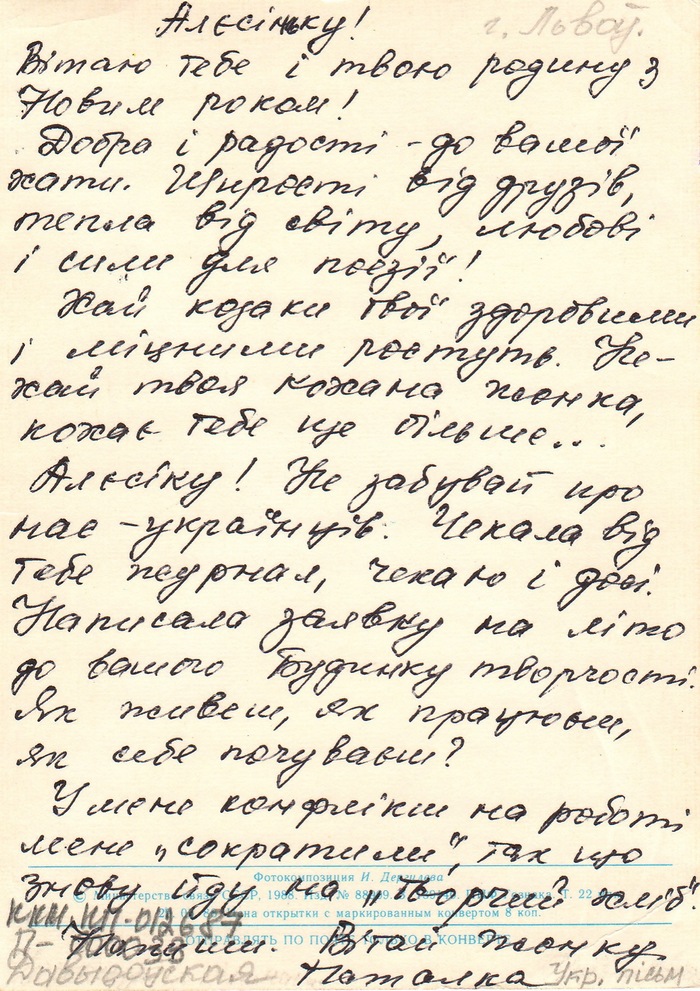 Алєсіньку!
г. Львоў.
Вітаю тебе і твою родину з
Новим роком!
Добра і радості - до вашої
хати. Щирості від друзів,
тепла від світу, любові
і сили для поезії!
Хай козаки твої здоровими
і міцними ростуть. Не-
хай твоя кохана жонка,
кохає тебе ще більше...
Алєсіку! Не забувай про
нас - українців. Чекала від
тебе журнал, чекаю і досі.
Написала заявку на літо
до вашого Будинку творчості.
Як живеш, як працюєш,
як себе почуваєш?
У мене конфлікт на роботі
мене „сократили", так що
Фотокомпозиция И. Дергилева
знову йду на „Творчий хліб".
© Министерство связи СССР, 1988. Изд. №
ККМ КП-012687
открытки с маркированным конвертом 8 коп.
Напиши. Вітай жонку
ОТПРАВЛЯТЬ ПО ПОЧТЕ ТОЛЬКО В КОНВЕРТЕ
Давыдоўская Наталка Укр. пісьм